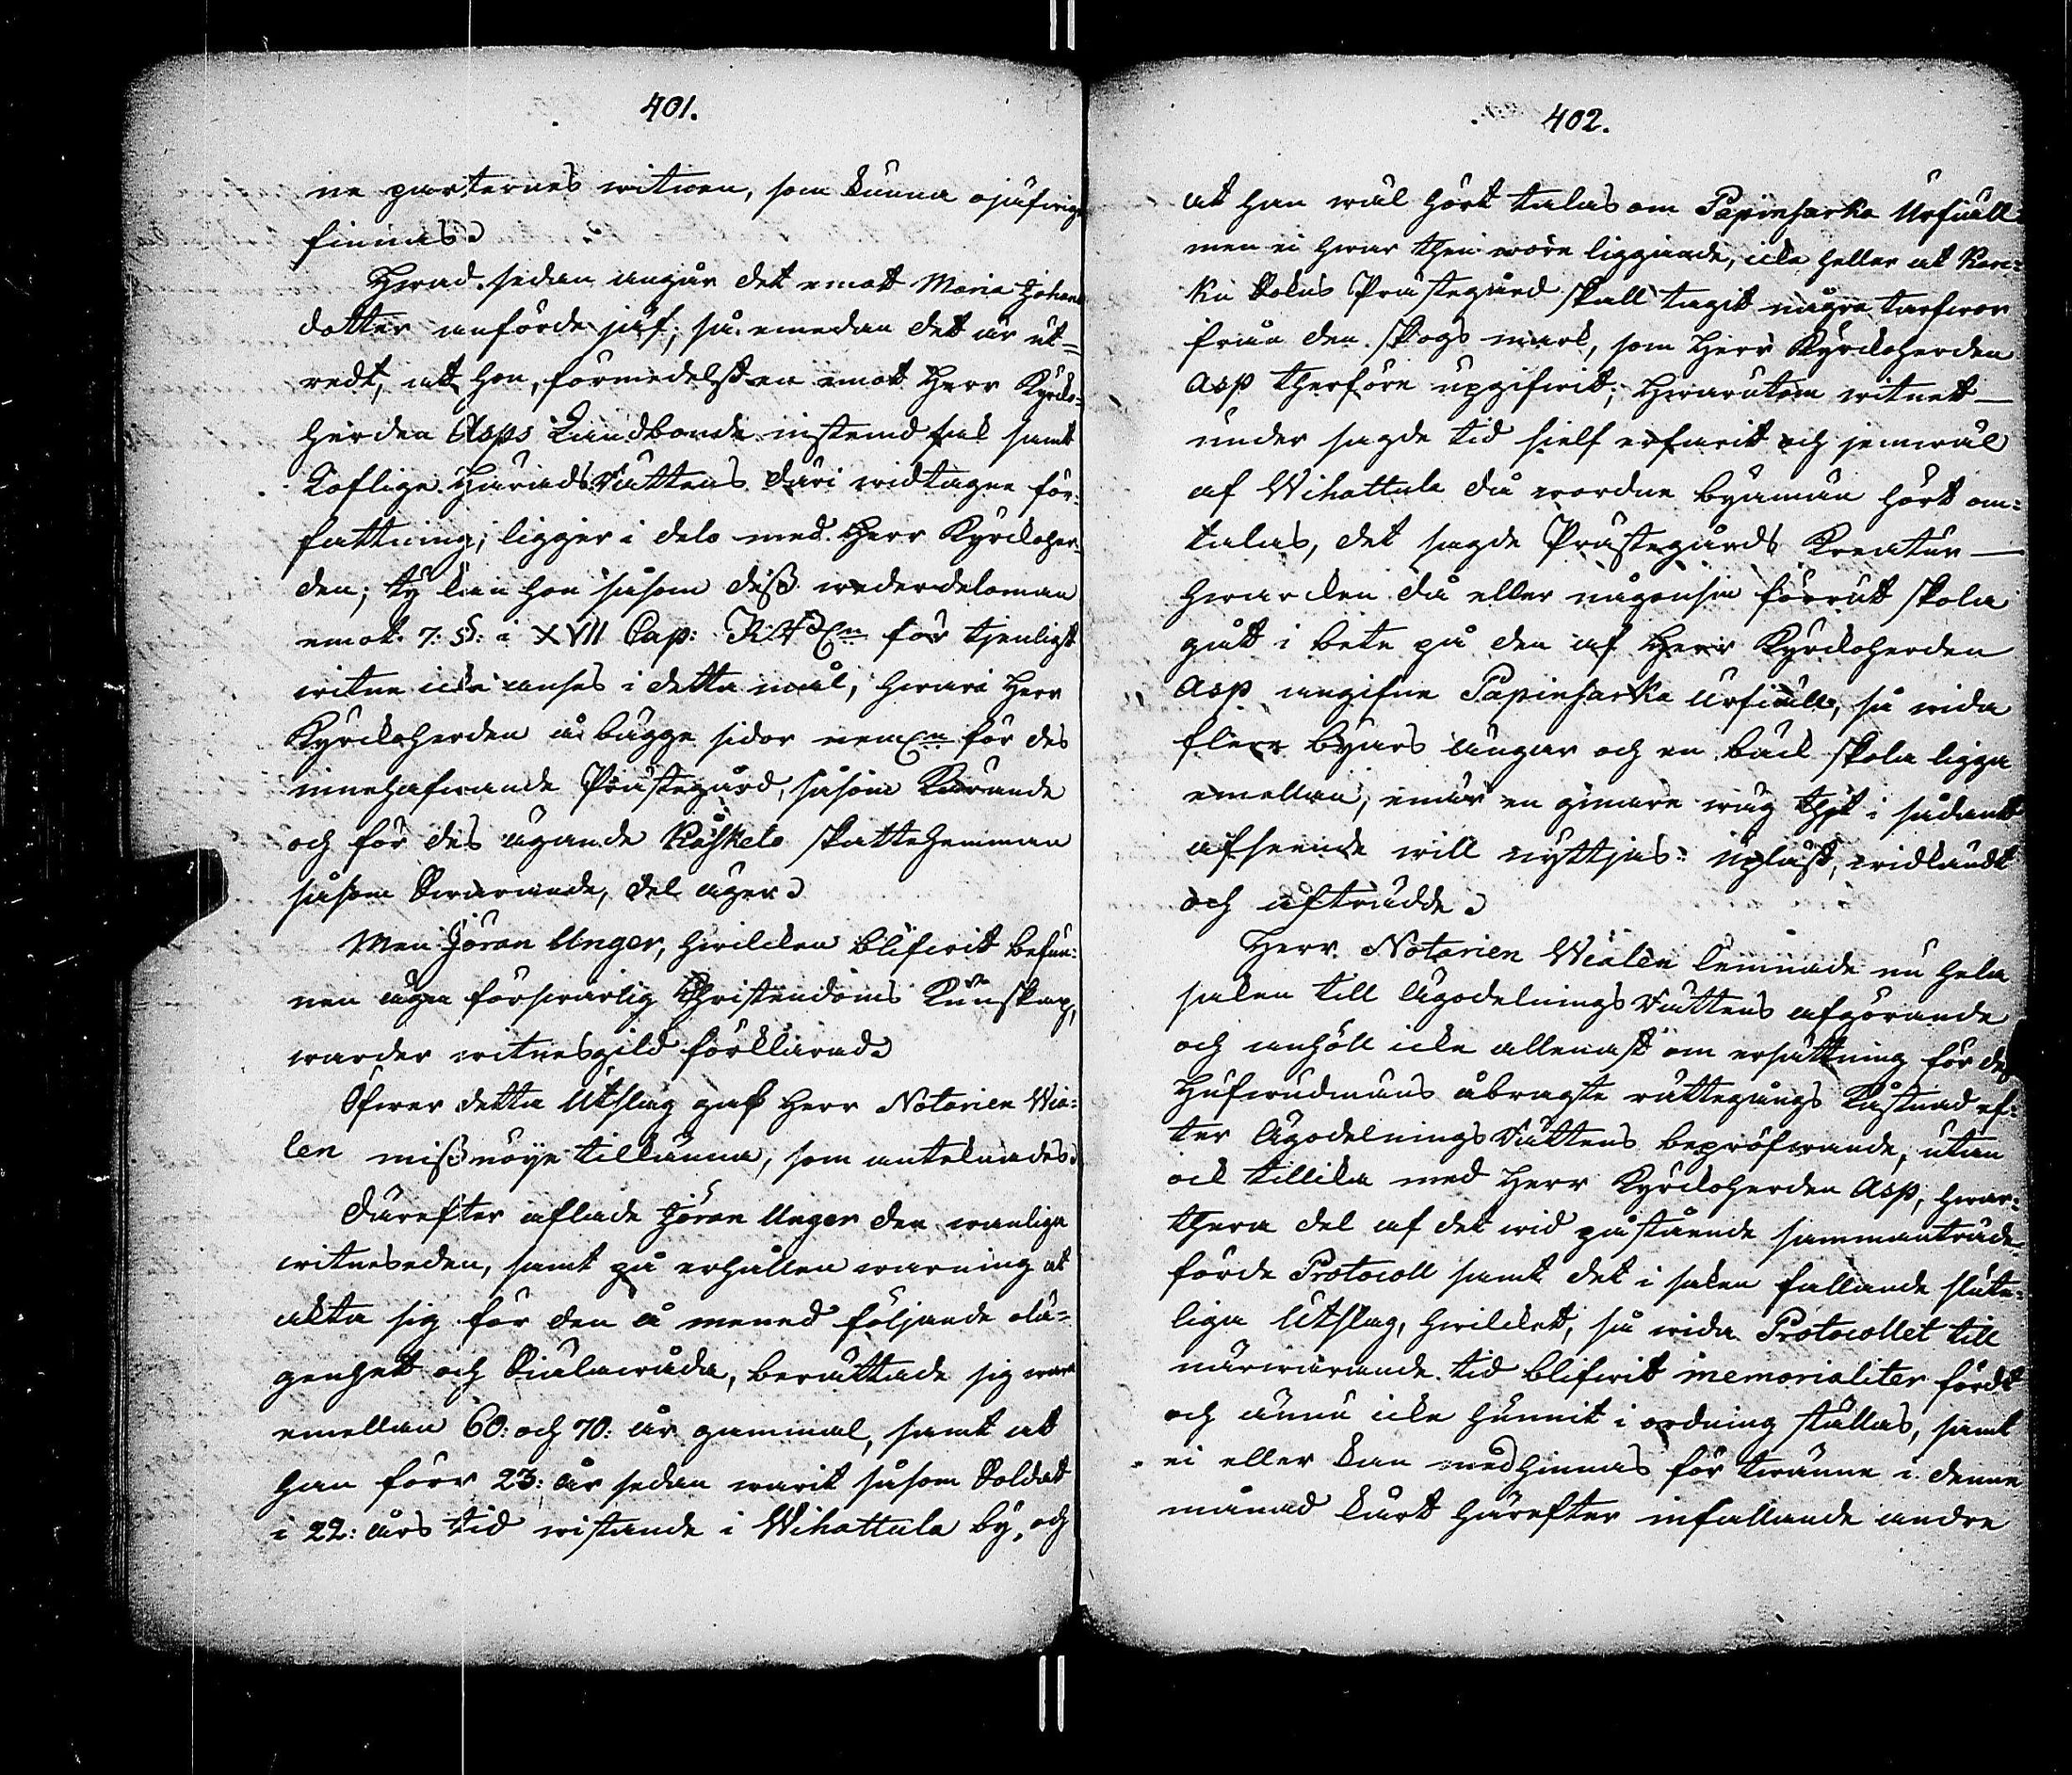 401.
ne parternes witnen, som kunna ojäfwige
finnas.
Hwad sedan angår det emot Maria Johans
dotter anförde jäf; så emedan det är ut=
redt, att hon, förmedelst en emot Herr Kyrcko=
herden Asps Landbonde instemd sak samt
Loflige HäradsRättens däri widtagne för=
fattning, ligger i delo med Herr Kyrckoher=
den; ty kan hon såsom dess wederdeloman
emot 7: §: i XVII Cap: R:B: för tjenligt
witne icke anses i detta mål, hwari Herr
Kyrckoherden å bägge sidor nemln för des
innehafwande Prästegård, såsom Kärande
och för des ägande Räskelo skattehemman
såsom Swarande, del äger.
Men Jöran Unger, hwilcken blifwit befun=
nen äga förswarlig Christendoms Kunskap,
warder witnesgild förklarad.
Öfwer detta Utslag gaf Herr Notarien Wia=
len missnöye tillkänna, som anteknades.
Därefter aflade Jöran Unger den wanliga
witneseden, samt på erhållen warning at
akta sig för den å mened följande olä=
genhet och Siälawåda, berättade sig wara
emellan 60: och 70: år gammal, samt att
han förr 23: år sedan warit såsom Soldat
i 22: års tid wistande i Wihattula by, och
402.
at han wäl hört talas om Papinsarka Urfiäll
men ei hwar then wore liggiande, icke heller at Kare=
ku Bolus Prästegård skall tagit några tarfwor
ifrån den skogs mark, som Herr Kyrckoherden
Asp therföre upgifwit; Hwarutom witnet —
under sagde tid sielf erfarit och jemwäl
af Wihattula då wordne byamän hört om=
talas, det sagde Prästegårds Kreatur —
hwarcken då eller någonsin förrut skola
gått i bete på den af Herr Kyrckoherden
Asp angifne Papinsarka Urfiäll, så wida
flere byars ängar och en bäck skola ligga
emellan, emär en ginare wäg thit i sådant
afseende will nyttjas: upläst, widkändt
och afträdde.
Herr Notarien Wialen lemnade nu hela
saken till ÄgodelningsRättens afgörande
och anhöll icke allenast om ersättning för des
Hufwudmans åbragte rättegångs Kåstnad ef=
ter ÄgodelningsRättens bepröfwande, utan
ock tillika med Herr Kyrckoherden Asp, hwar=
thera del af det wid påstående sammanträde
förde Protocoll samt det i saken fallande slute=
liga Utslag, hwilcket, så wida Protocollet till
närwarande tid blifwit memorialiter fördt
och ännu icke hunnit i ordning ställas, samt
ei eller kan medhinnas för twänne i denne
månad kårt härefter infallande andre